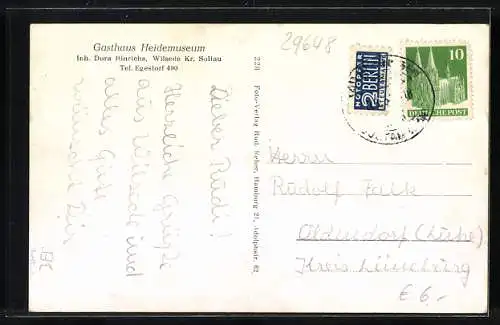 Gasthaus Heidemuseum
Inh. Dora Hinrichs, Wilsede Kr. Soltau
Tel. Egestorf 490
29648
Lieber Rudi!
Herzliche Grüße
aus Wilsede und
alles Gute
wünscht Dir
228 Foto-Verlag Rud. Reher, Hamburg 21, Adolphstr. 62
NOTOPFER
2 BERLIN
STEUERMARKE
10
DEUTSCHE POST
Herrn
Rudolf Falk
Oldendorf (Luhe)
Kreis Lüneburg
€ 6,-